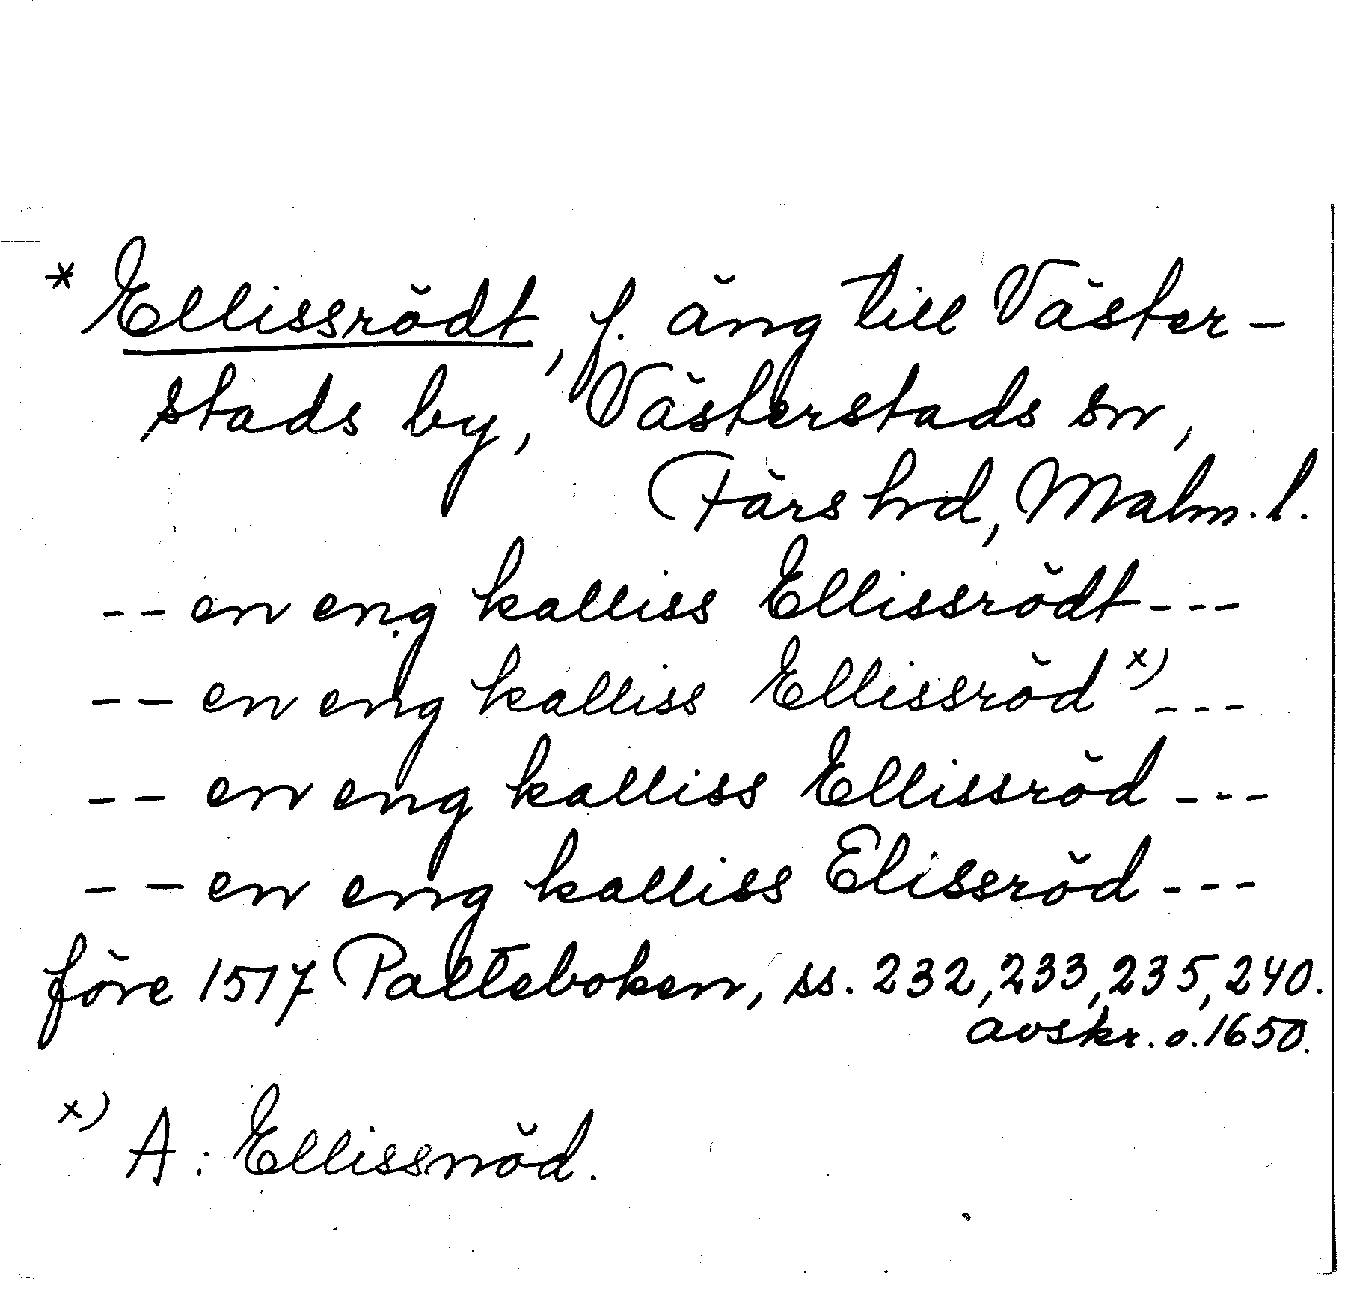 * Ellissrödt, f. äng till Väster-
stads by, Västerstads sn,
Färs hrd, Malm. l.
-- en eng kalliss Ellissrödt---
-- en eng kalliss Ellissröd x) ---
-- en eng kalliss Ellissröd ---
-- en eng kalliss Elissröd ---
före 1517 Palteboken, ss. 232, 233, 235, 240.
avskr. o. 1650.
x) A: Ellissnöd.